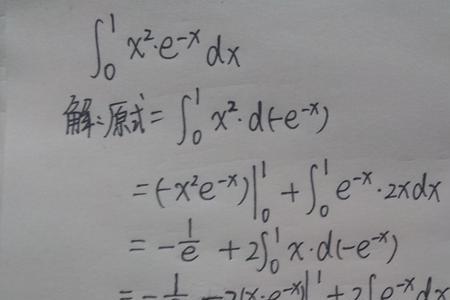 ∫₀¹ x²·e⁻ˣ dx
解:原式 = ∫₀¹ x²·d(-e⁻ˣ)
= (-x²e⁻ˣ)|₀¹ + ∫₀¹ e⁻ˣ·2xdx
= -1/e + 2∫₀¹ x·d(-e⁻ˣ)